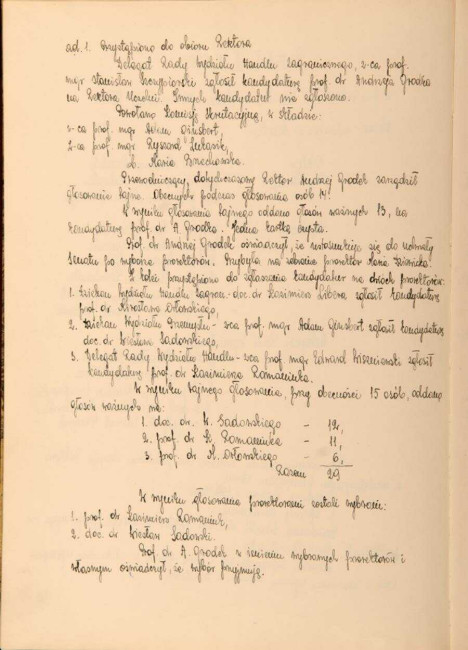 ad. 1. Przystąpiono do obioru Rektora
Delegat Rady Wydziału Handlu Zagranicznego, z-ca prof.
mgr Stanisław Szczypiorski zgłosił kandydaturę prof. dr Andrzeja Grodka
na Rektora Uczelni. Innych kandydatur nie zgłoszono.
Powołano Komisję Skrutacyjną, w składzie:
z-ca prof. mgr Adam Ginsbert,
z-ca prof. mgr Ryszard Łukasik,
Ob. Maria
Przewodniczący, dotychczasowy Rektor Andrzej Grodek zarządził
głosowanie tajne. Obecnych podczas głosowania osób 14.
W wyniku głosowania tajnego oddano głosów ważnych 13, na
kandydaturę prof. dr A. Grodka. Jedna kartka czysta.
Prof. dr Andrzej Grodek oświadczył, że ustosunkuje się do uchwały
Senatu po wyborze prorektorów. Przybyła na zebranie prorektor
Z kolei przystąpiono do zgłaszania kandydatur na dwóch prorektorów:
1. Dziekan Wydziału Handlu Zagran.- doc. dr Kazimierz Libera zgłosił kandydaturę
prof. dr Mirosława Orłowskiego,
2. Dziekan Wydziału Przemysłu - zca prof. mgr Adam Ginsbert zgłosił kandydaturę
doc. dr Wiesława Sadowskiego,
3. Delegat Rady Wydziału Handlu - zca prof mgr Edward Wiszniewski zgłosił
kandydaturę prof. dr Kazimierza Romaniuka.
W wyniku tajnego głosowania, przy obecności 15 osób, oddano
głosów ważnych na:
1. doc. dr. W. Sadowskiego - 12,
2. prof. dr K. Romaniuka - 11,
3. prof. dr M. Orłowskiego - 6,
Razem 29
W wyniku głosowania prorektorami zostali wybrani:
1. prof. dr Kazimierz Romaniuk,
2. doc. dr Wiesław Sadowski.
Prof. dr A. Grodek w imieniu wybranych prorektorów i
własnym oświadczył, że wybór przyjmują.